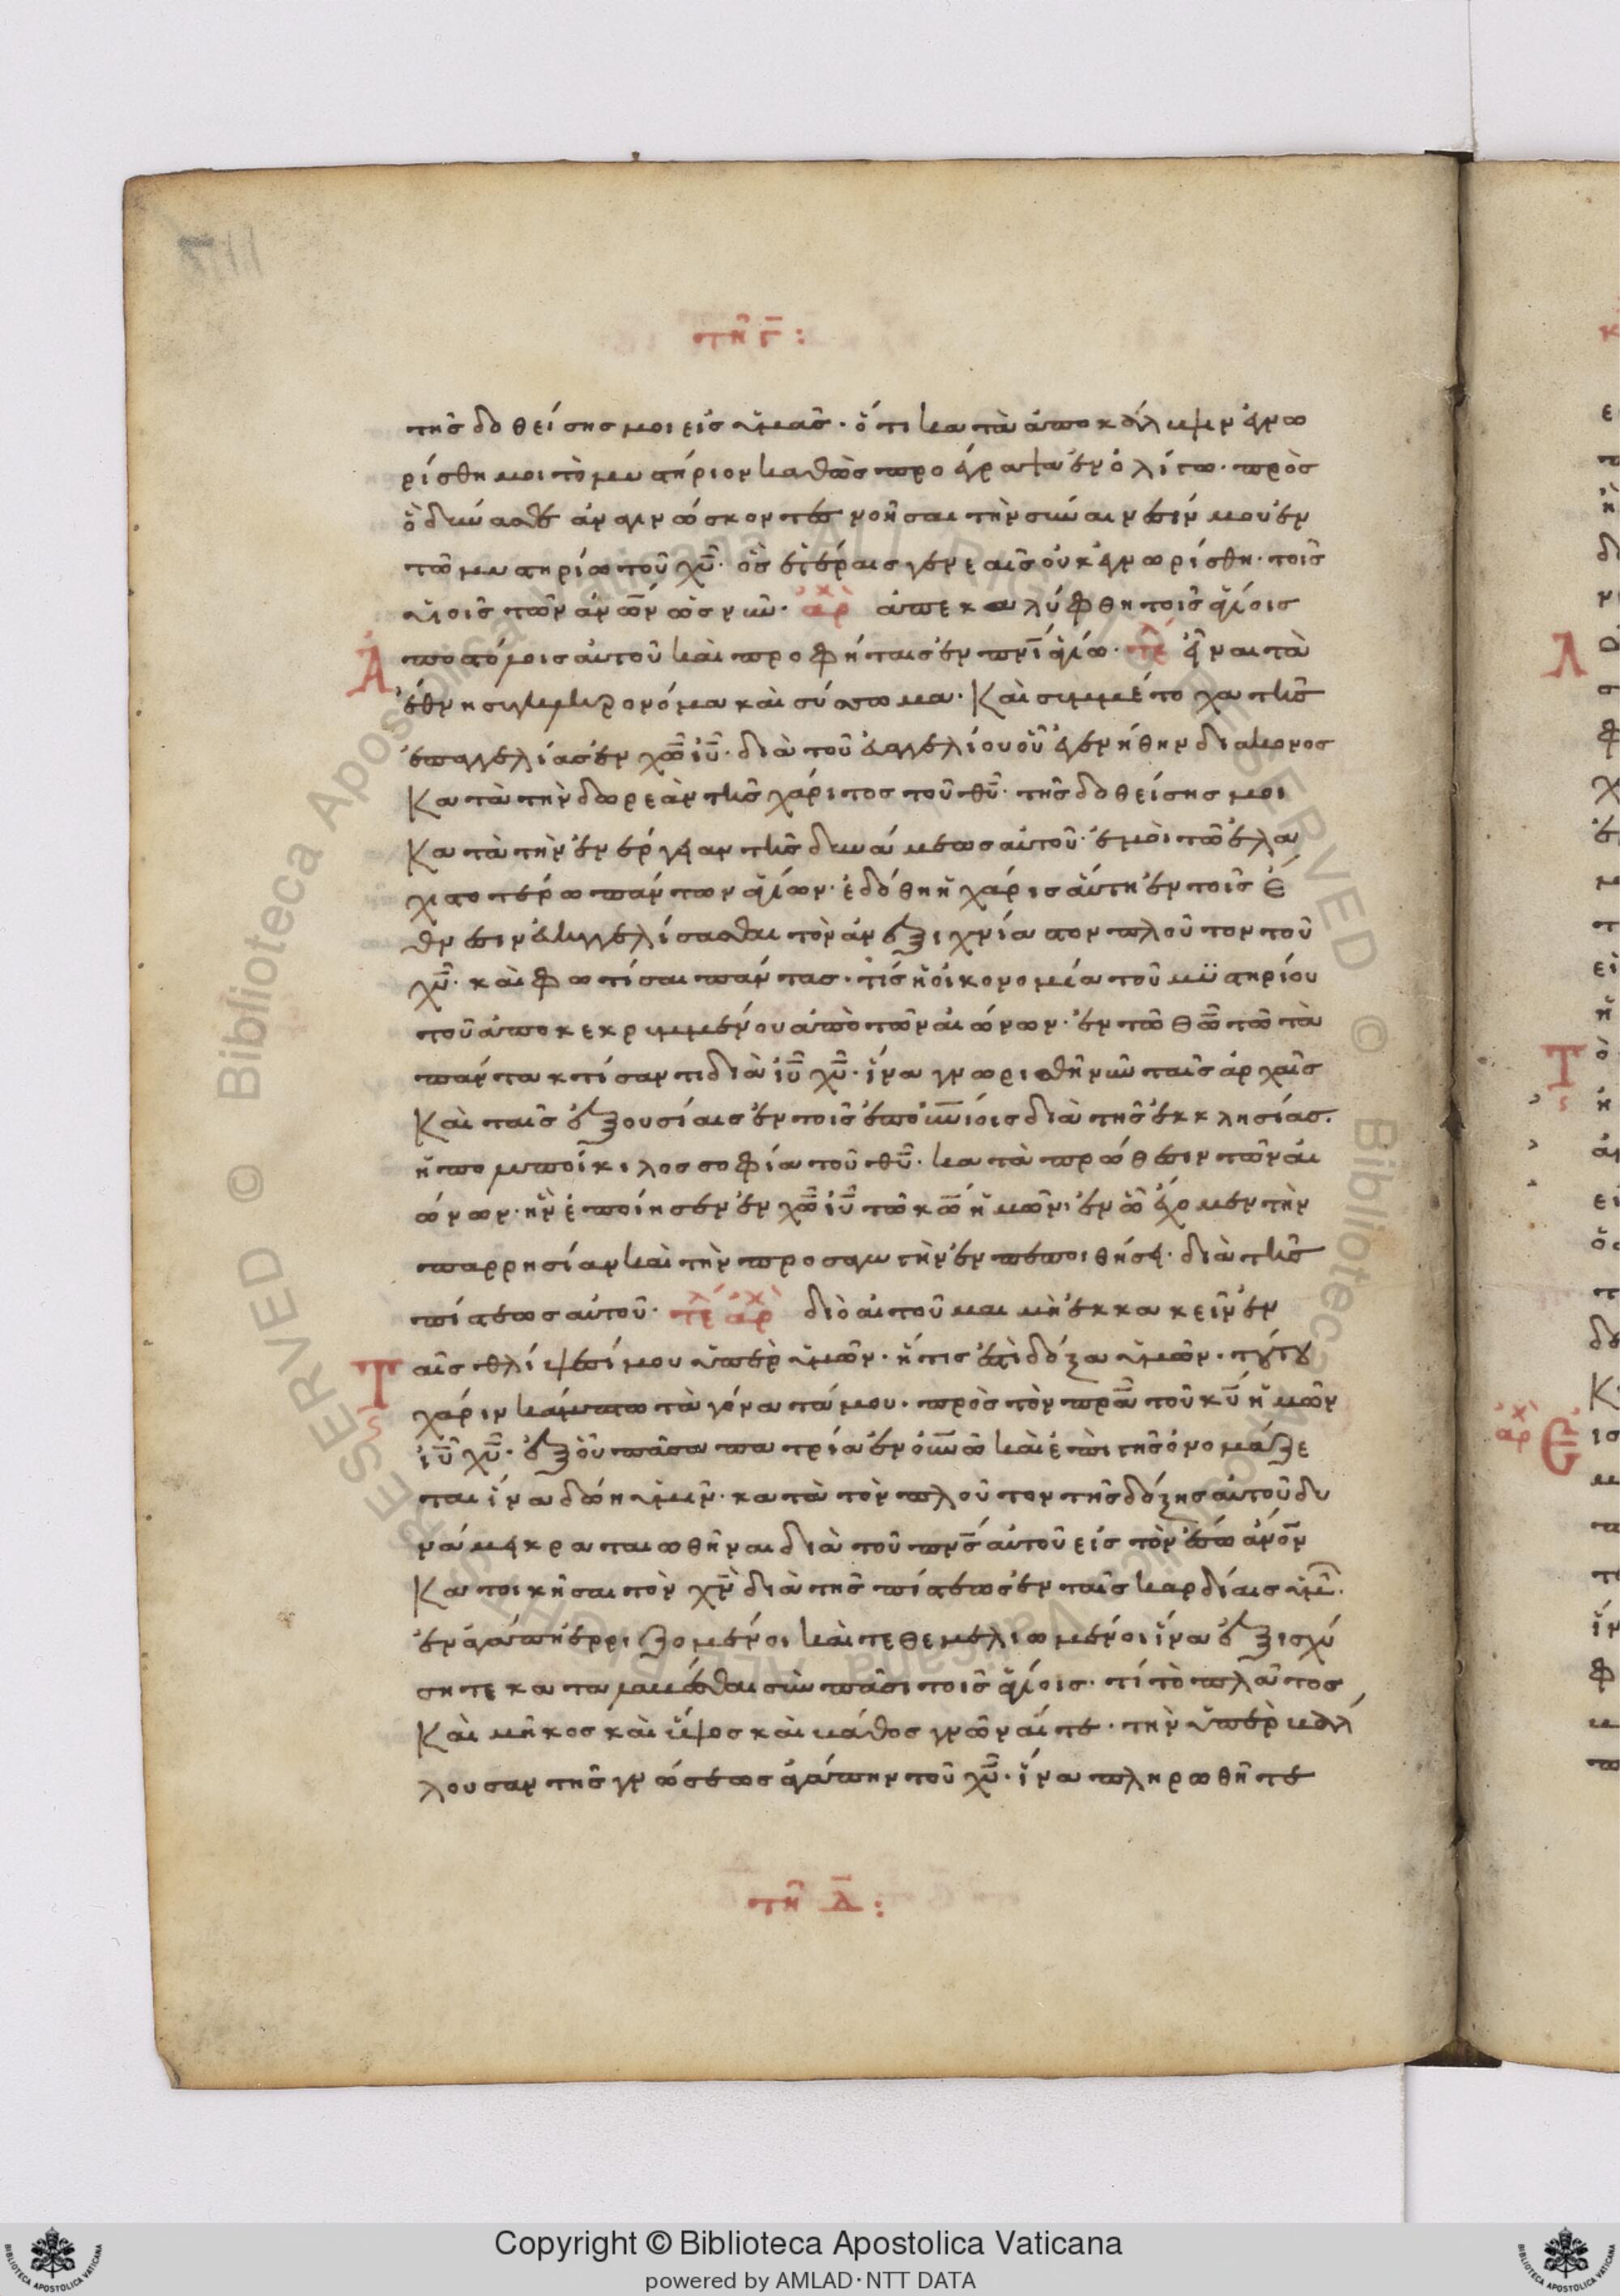 τῆ γ̅:
τῆς δοθείσης μοι εἰς ὑμᾶς· ὅτι κατὰ ἀποκάλυψιν ἐγνω
ρίσθη μοι τὸ μυστήριον καθὼς προέγραψα ἐν ὀλίγω· πρὸς
ὃ δύνασθε ἀναγινώσκοντες νοῆσαι τὴν σύνεσίν μου ἐν
τῶ μυστηρίω τοῦ χ̅υ̅· ὃ ἑτέραις γενεαῖς οὐκ ἐγνωρίσθη· τοῖς
υἱοῖς τῶν ἀν̅ω̅ν ὡς νῦν· ἀρ̀χ ἀπεκαλύφθη τοῖς ἁγίοις
ἀποστόλοις αὐτοῦ καὶ προφήταις ἐν π̅ν̅ι̅ ἁγίω· τέ̀λ εἶναι τὰ
ἔθνη συγκληρονόμα καὶ σύσσωμα· Καὶ συμμέτοχα τῆς
ἐπαγγελίας ἐν χ̅ω̅ ι̅υ̅· διὰ τοῦ εὐαγγελίου οὗ ἐγενήθην διάκονος
Κατὰ τὴν δωρεὰν τῆς χάριτος τοῦ θ̅υ̅· τῆς δοθείσης μοι
Κατὰ τὴν ἐνέργειαν τῆς δυνάμεως αὐτοῦ· ἐμοὶ τῶ ἐλα
χιστοτέρω πάντων ἁγίων· ἐδόθη ἡ χάρις αὕτη ἐν τοῖς ἔ
θνεσιν εὐαγγελίσασθαι τὸν ἀνεξιχνίαστον πλοῦτον τοῦ
χ̅υ̅· καὶ φωτίσαι πάντας· τίς ἡ οἰκονομία τοῦ μυστηρίου
τοῦ ἀποκεκρυμμένου ἀπὸ τῶν αἰώνων· ἐν τῶ θ̅ω̅ τῶ τὰ
πάντα κτίσαντι διὰ ι̅υ̅ χ̅υ̅· ἵνα γνωρισθῆ νῦν ταῖς ἀρχαῖς
Καὶ ταῖς ἐξουσίαις ἐν τοῖς ἐπουν̅ίοις διὰ τῆς ἐκκλησίας·
ἡ πολυποίκιλος σοφία τοῦ θ̅υ̅· κατὰ πρόθεσιν τῶν αἰ
ώνων· ἣν ἐποίησεν ἐν χ̅ω̅ ι̅υ̅ τῶ κ̅ω̅ ἡμῶν· ἐν ὧ ἔχομεν τὴν
παρρησίαν καὶ τὴν προσαγωγὴν ἐν πεποιθήσει· διὰ τῆς
πίστεως αὐτοῦ· τέ̀λ ἀρ̀χ διὸ αἰτοῦμαι μὴ ἐκκακεῖν ἐν
Ταῖς θλίψεσί μου ὑπὲρ ὑμῶν· ἥτις ἐστὶ δόξα ὑμῶν· τούτου
χάριν κάμπτω τὰ γόνατά μου· πρὸς τὸν π̅ρ̅α̅ τοῦ κ̅υ̅ ἡμῶν
ι̅υ̅ χ̅υ̅· ἐξ οὗ πᾶσα πατρία ἐν οὐν̅ῶ καὶ ἐπὶ γῆς ὀνομάζε
ται ἵνα δώη ὑμῖν· κατὰ τὸν πλοῦτον τῆς δόξης αὐτοῦ δυ
νάμει κραταιωθῆναι διὰ τοῦ π̅ν̅ς̅ αὐτοῦ εἰς τὸν ἔσω ἀν̅ο̅ν
Κατοικῆσαι τὸν χ̅ν̅ διὰ τῆς πίστεως ἐν ταῖς καρδίαις ὑμῶ·
ἐν ἀγάπη ἐρριζομένοι καὶ τεθεμελιωμένοι ἵνα ἐξισχύ
σητε καταλαβέσθαι σὺν πᾶσι τοῖς ἁγίοις· τί τὸ πλάτος
Καὶ μῆκος καὶ ὕψος καὶ βάθος γνῶναί τε· τὴν ὑπερβάλ
λουσαν τῆς γνώσεως ἀγάπην τοῦ χ̅υ̅· ἵνα πληρωθῆτε
τῆ δ̅: